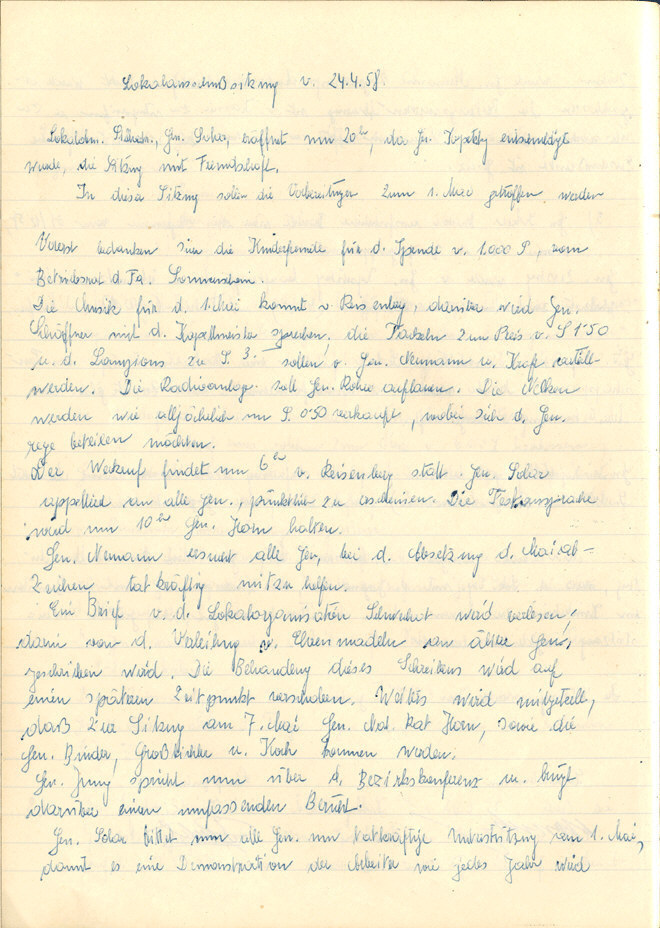 Lokalausschußsitzung v. 24.4.58.
Lokalobm. Stellvtr., Gen. Solar, eröffnet um 20 Uhr, da Gen. entschuldigt
wurde, die Sitzung mit Freundschaft.
In dieser Sitzung sollen die Vorbereitungen zum 1. Mai getroffen werden
Vorerst bedanken sich die Kinderfreunde für d. Spende v. 1.000 S, vom
Betriebsrat d. Fa.
Die Musik für d. 1. Mai kommt v. Reisenberg, darüber wird Gen.
Schöffner mit d. Kapellmeister sprechen, die Fackeln zum Preis v. S 1'50
u. d. Lampions zu S. 3.- sollen v. Gen. Neumann u. verteilt
werden. Die Radioanlage soll Gen. aufbauen. Die Nelken
werden wie alljährlich um S. 0'50 verkauft, wobei sich d. Gen.
rege beteiligen möchten.
Der Weckruf findet um 6 Uhr v. Reisenberg statt. Gen. Solar
appelliert an alle Gen., pünktlich zu erscheinen. Die Festansprache
wird um 10 Uhr Gen. Horn halten.
Gen. Neumann ersucht alle Gen., bei d. Absetzung d. Maiab-
zeichen tatkräftig mitzuhelfen.
Ein Brief v. d. Lokalorganisation Schwechat wird verlesen,
darin von d. Verleihung v. Ehrennadeln an ältere Gen.,
geschrieben wird. Die Behandlung dieses Schreibens wird auf
einen späteren Zeitpunkt verschoben. Weiters wird mitgeteilt,
daß zur Sitzung am 7. Mai Gen. Nat. Rat Horn, sowie die
Gen. Binder, u. Koch kommen werden.
Gen. Jung spricht nun über d. Bezirkskonferenz u. bringt
darüber einen umfassenden Bericht.
Gen. Solar bittet nun alle Gen. um tatkräftige Unterstützung am 1. Mai,
damit es eine Demonstration der Arbeiter wie jedes Jahr wird